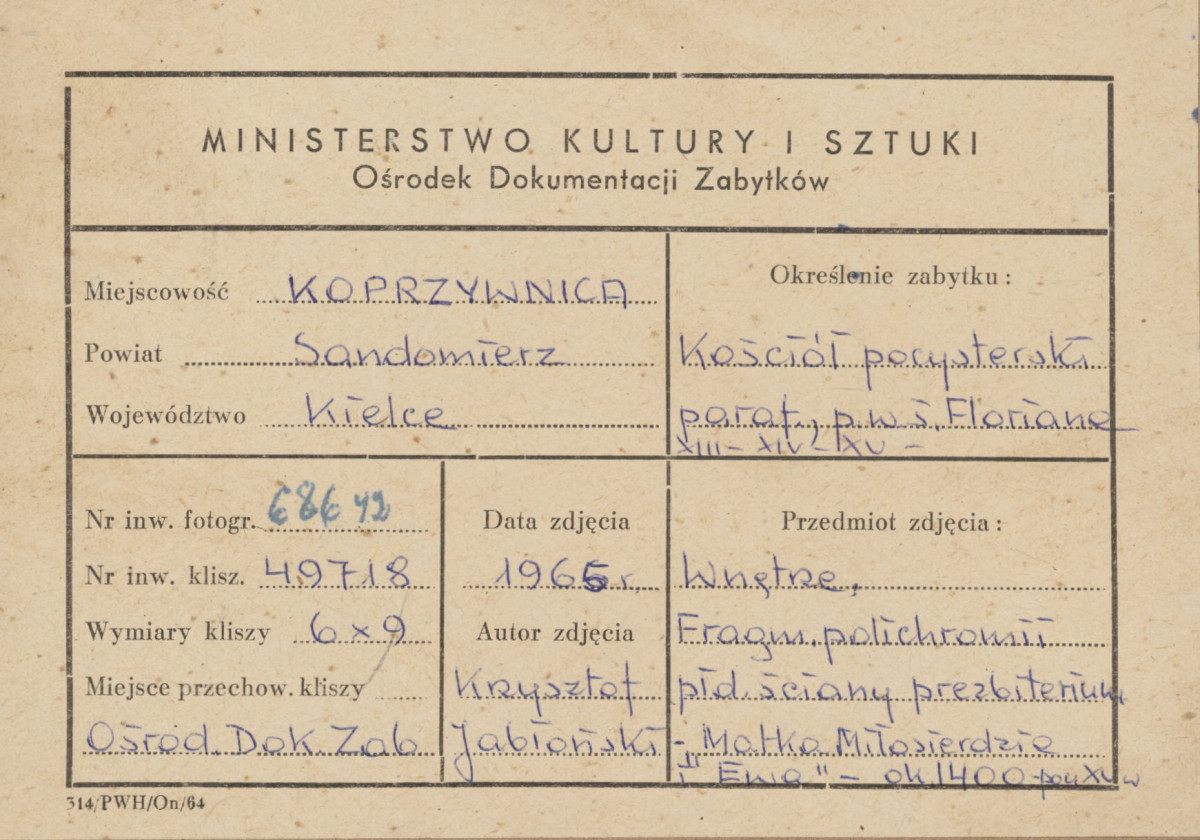 MINISTERSTWO KULTURY I SZTUKI
Ośrodek Dokumentacji Zabytków
Miejscowość KOPRZYWNICA
Powiat Sandomierz
Województwo Kielce
Określenie zabytku:
Kościół pocysterski
paraf., p.w ś. Floriana
XIII – XIV – XV –
Nr inw. fotogr. 68642
Nr inw. klisz. 49718
Wymiary kliszy 6 x 9
Miejsce przechow. kliszy
Ośrod. Dok. Zab
Data zdjęcia
1965 r.
Autor zdjęcia
Krzysztof
Jabłoński
Przedmiot zdjęcia:
Wnętrze.
Fragm. polichromii
płd. ściany prezbiterium
- Matka Miłosierdzia
i "Ewa" – ok. 1400 XV w
314/PWH/On/64